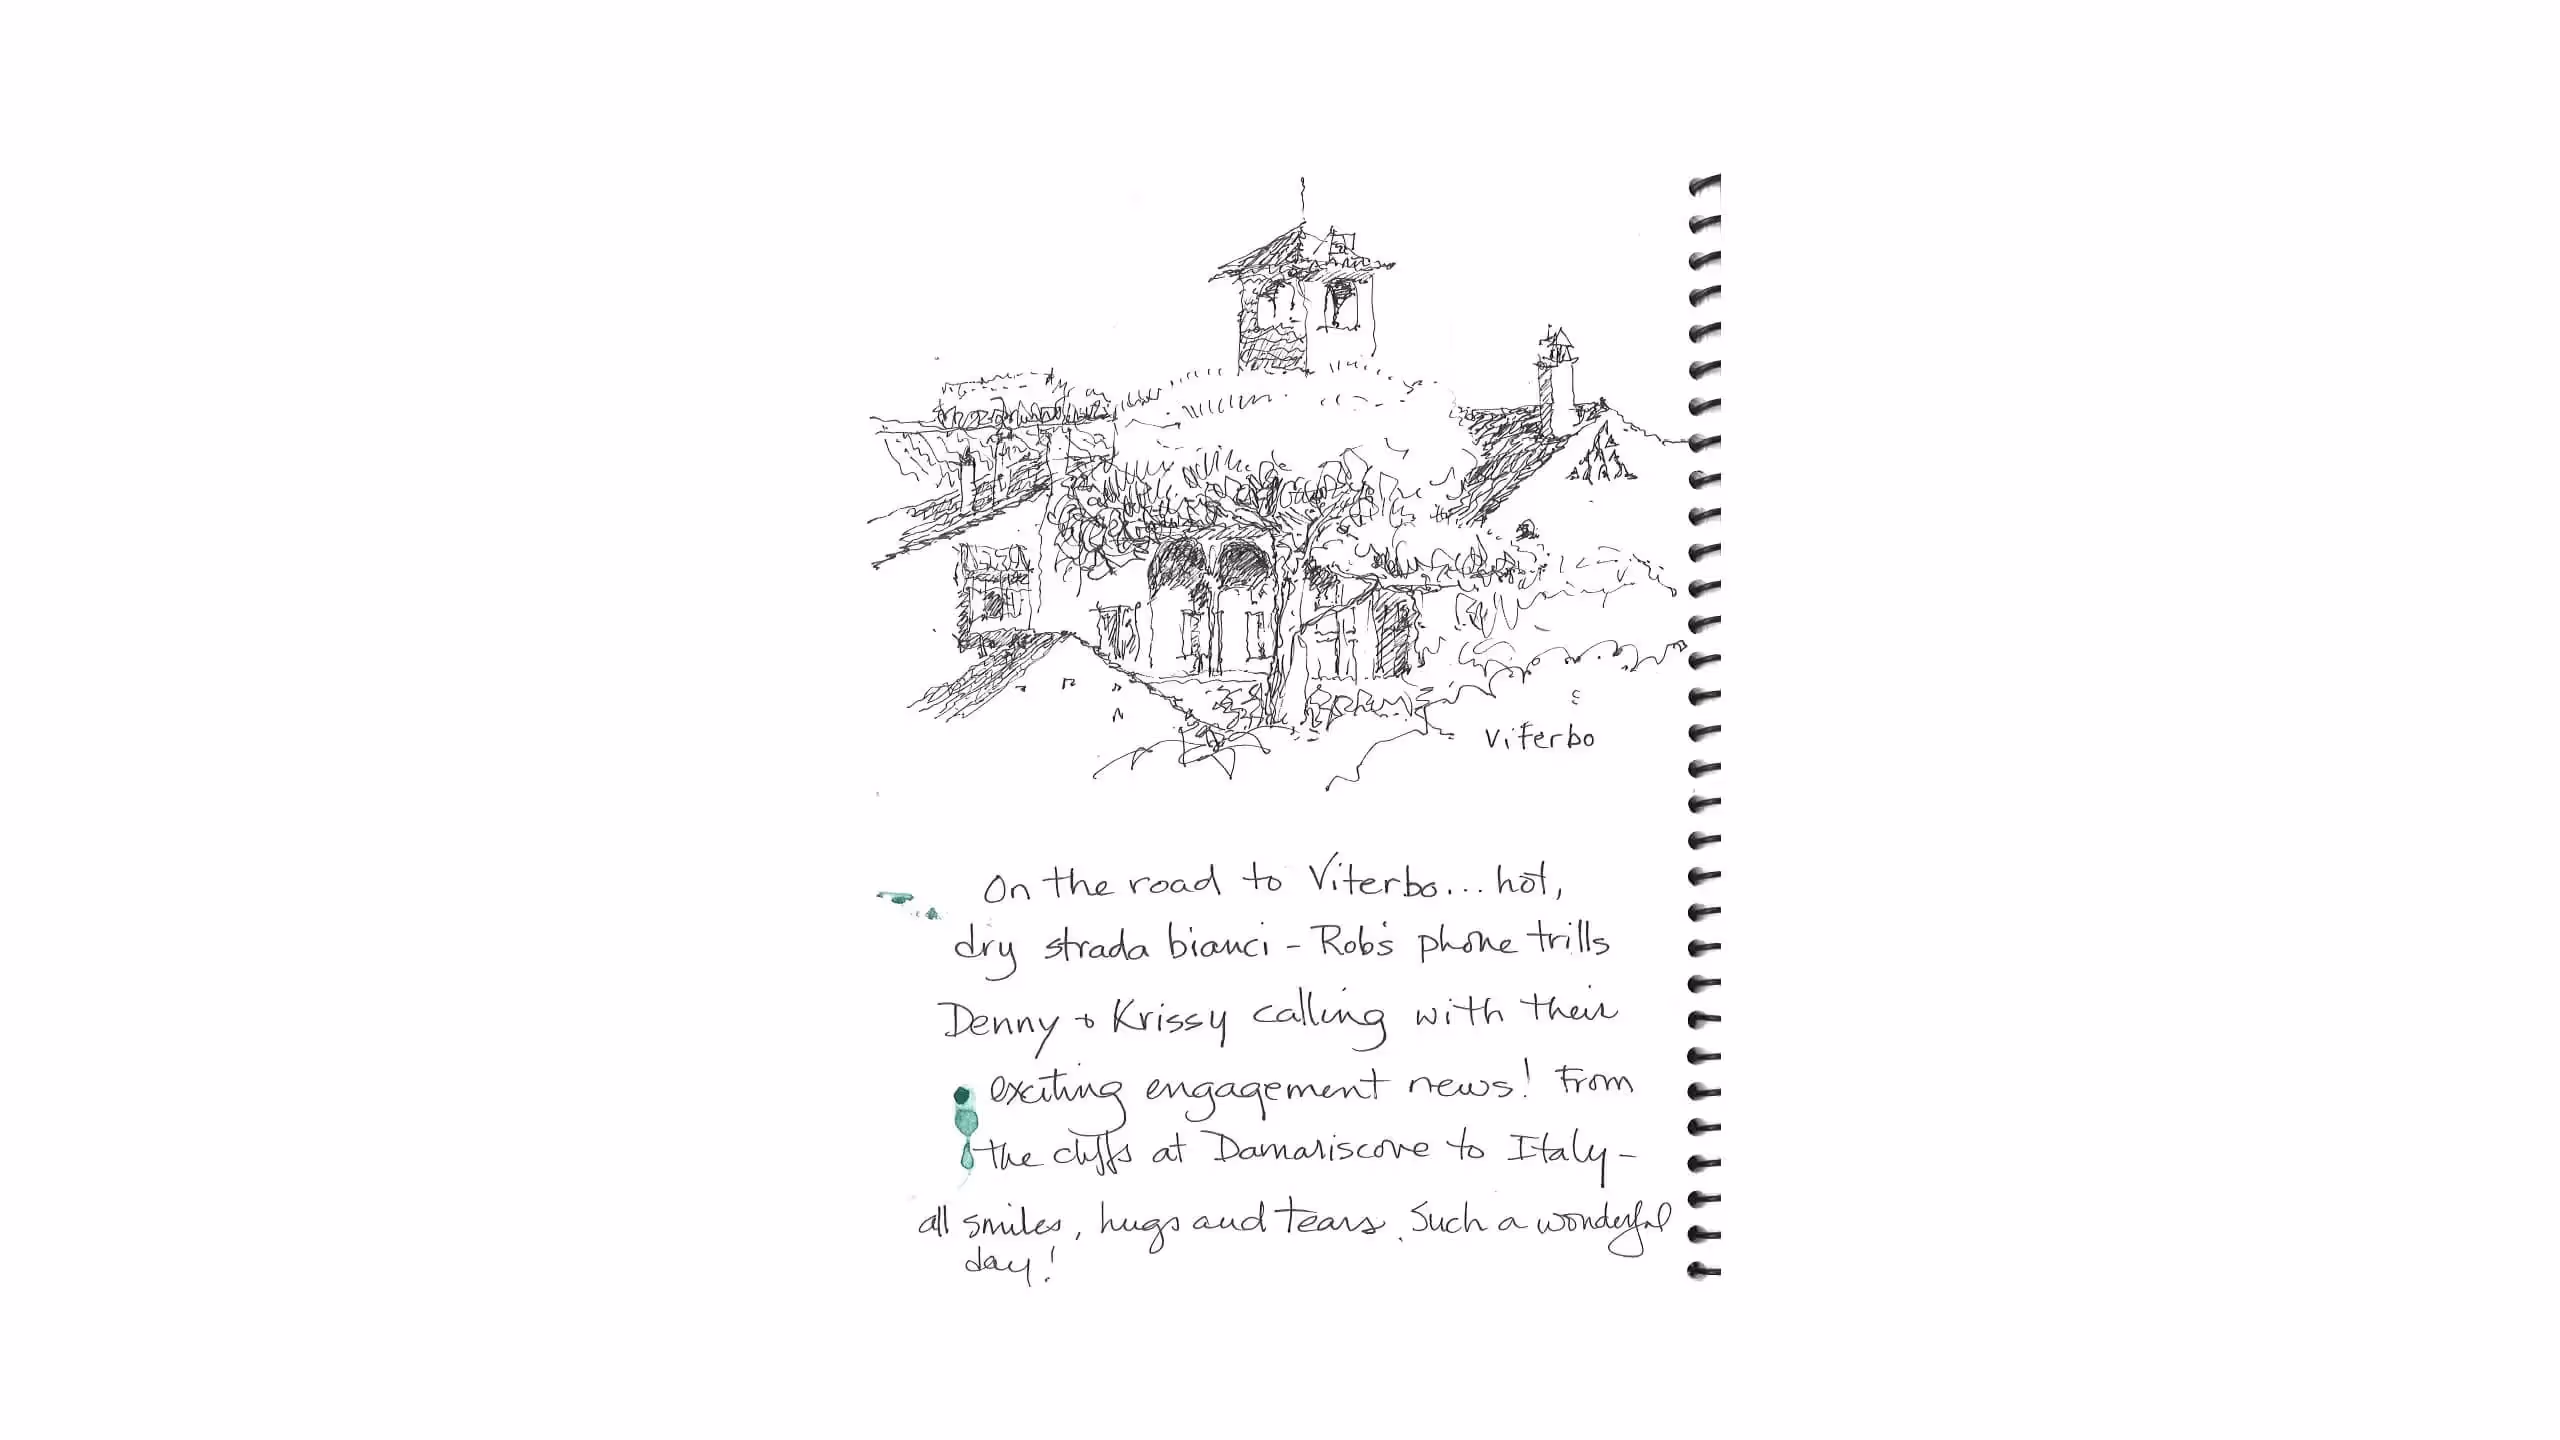 Viterbo
On the road to Viterbo... hot,
dry strada bianci - Rob's phone trills
Denny + Krissy calling with their
exciting engagement news! From
the cliffs at Damariscove to Italy -
all smiles, hugs and tears. Such a wonderful
day!